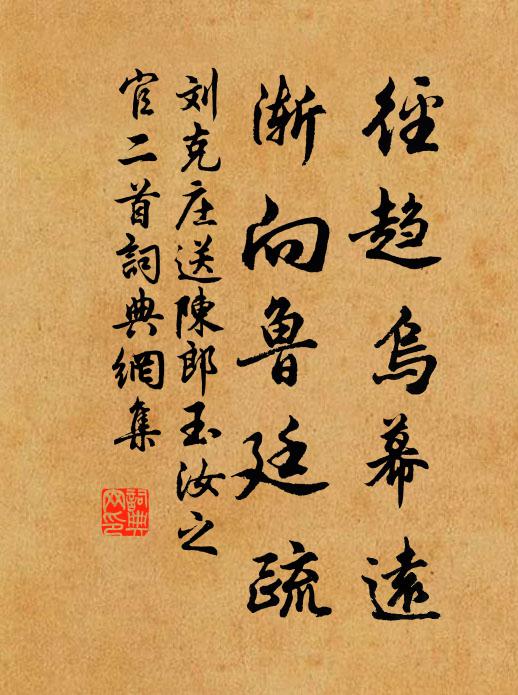 徑趋烏幕遠
漸向魯廷疏
刘克庄送陳郎玉汝之
官二首詞典網集
詞典
网印